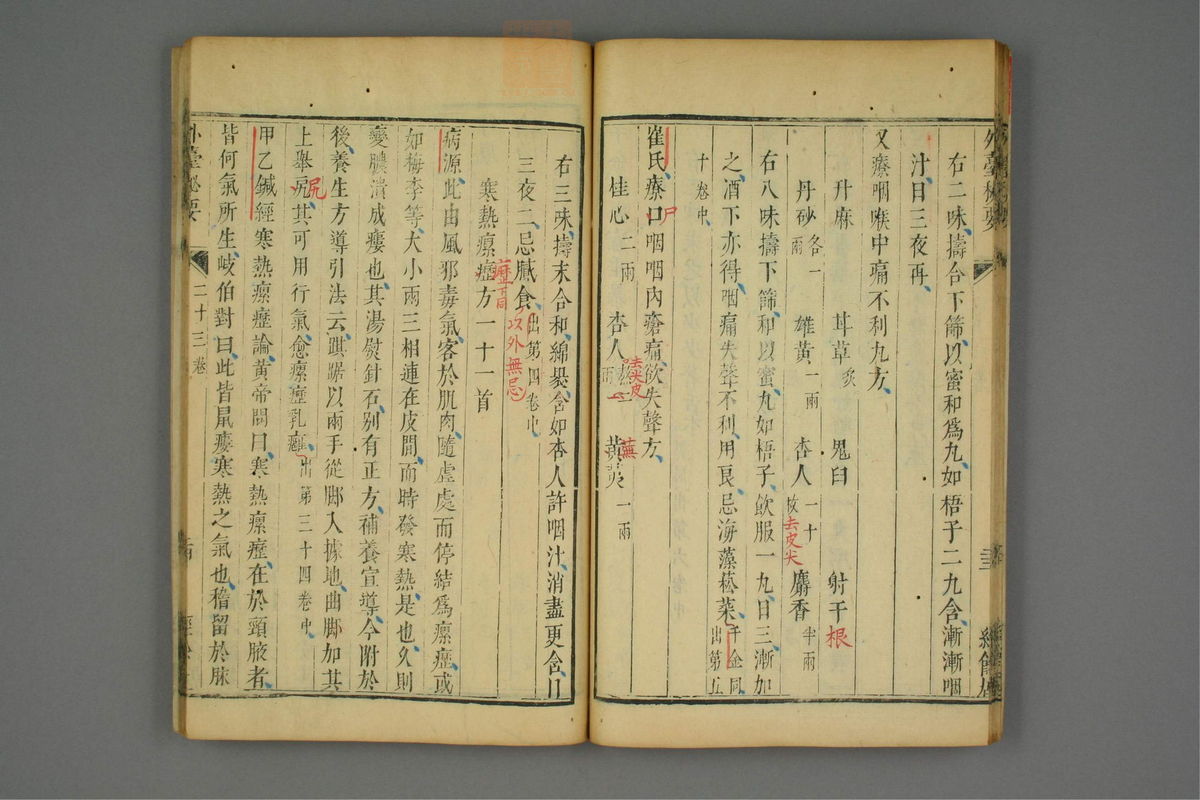 外臺秘要
右二味擣合下篩以蜜和爲丸如梧子二九含漸漸咽
汁日三夜再
又療咽喉中痛不利丸方
升麻 茸草炙 鬼臼 射干根
丹砂各一兩 雄黃一兩 杏人一十枚去皮尖 麝香半兩
右八味擣下篩和以蜜丸如梧子飲服一九日三漸加
之酒下亦得咽痛失聲不利用良忌海藻菘菜千金同出第五
十卷中
崔氏療口尸咽咽內瘡痛欲失聲方
桂心二兩 杏人一兩去尖皮 蕪荑一兩
右三味擣末合和綿裹含如杏人許咽汁消盡更含日
三夜二忌膩食出第四卷中以外無忌
寒熱瘰癧方一十一首 歷下同
病源此由風邪毒氣客於肌肉隨虛處而停結爲瘰癧或
如梅李等大小兩三相連在皮間而時發寒熱是也久則
變膿潰成瘻也其湯熨針石別有正方補養宣導今附於
後養生方導引法云踑踞以兩手從脚入據地曲脚加其
上舉尻其可用行氣愈瘰癧乳癰出第三十四卷中
尻
甲乙鍼經寒熱瘰癧論黃帝問曰寒熱瘰癧在於頸腋者
皆何氣所生岐伯對曰此皆鼠瘻寒熱之氣也稽留於脉
外臺秘要
二十三卷
經餘居